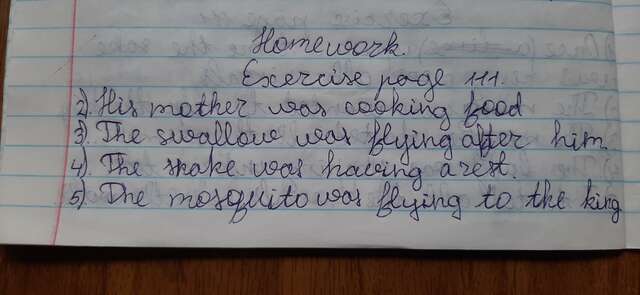 Homework.
Exercise page 111.
2). His mother was cooking food
3). The swallow was flying after him.
4). The snake was having a rest.
5). The mosquito was flying to the king